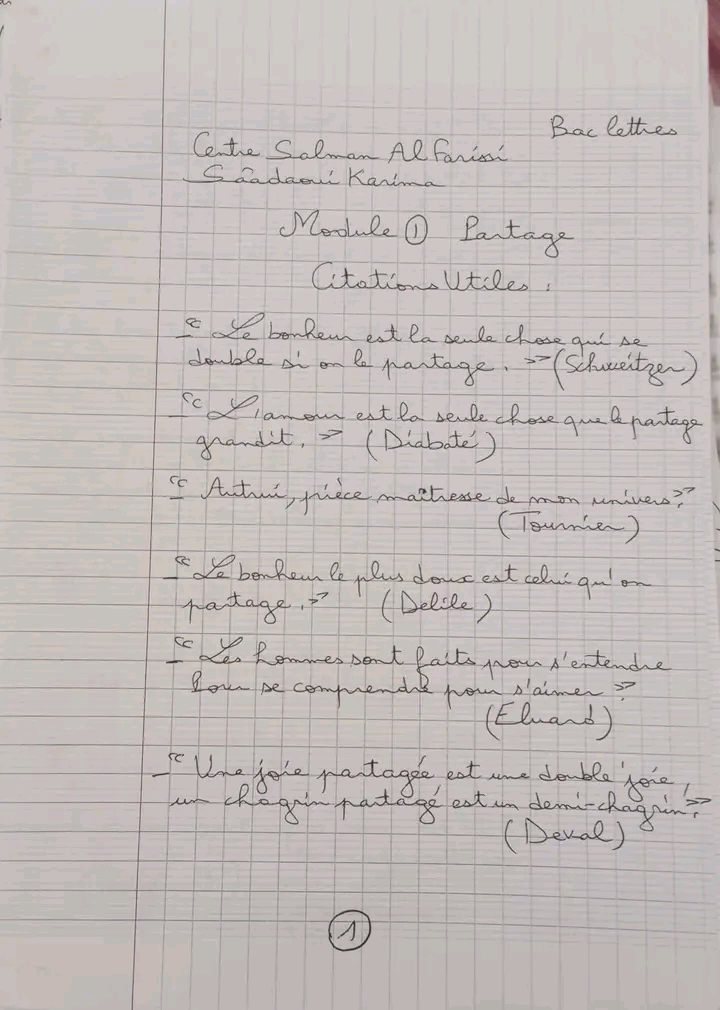 Bac lettres
Centre Salman Al Farissi
Sâadaoui Karima
Module ① Partage
Citations Utiles :
- « Le bonheur est la seule chose qui se
double si on le partage. » (Schweitzer)
- « L'amour est la seule chose que le partage
grandit. » (Diabaté)
- « Autrui, pièce maîtresse de mon univers. »
(Tournier)
- « Le bonheur le plus doux est celui qu'on
partage. » (Delile)
- « Les hommes sont faits pour s'entendre
Pour se comprendre pour s'aimer. »
(Eluard)
- « Une joie partagée est une double joie,
un chagrin partagé est un demi-chagrin. »
(Deval)
1